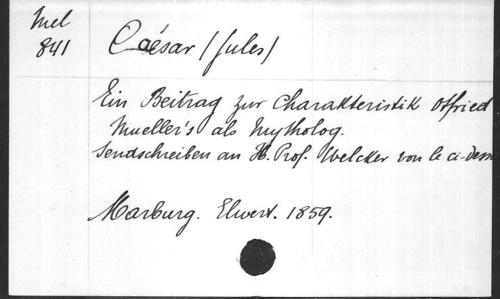 Mel
841
Caésar (Jules)
Ein Beitrag zur Charakteristik Otfried
Mueller's als Mytholog.
Sendschreiben an H. Prof. Welcker von le ci-dess
Marburg. Elwert. 1859.